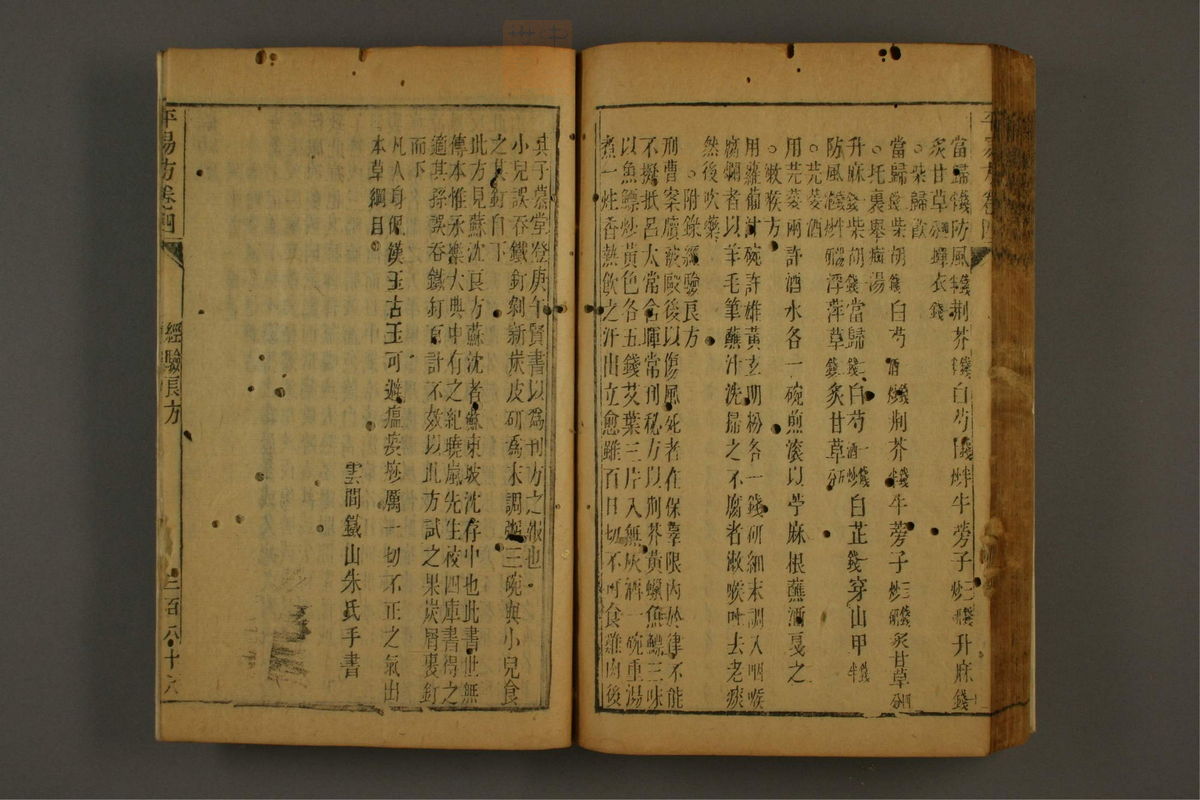 當歸錢防風錢荊芥錢白芍錢半牛蒡子炒研升麻錢
炙甘草蟬衣錢
○柴歸飲
當歸錢柴胡錢白芍酒炒錢荊芥錢半牛蒡子炒研錢炙甘草
○托裏舉斑湯
升麻錢柴胡錢當歸錢白芍酒炒一錢白芷錢穿山甲錢
防風浮萍草錢炙甘草
○芫荽酒
用芫荽兩許酒水各一碗煎滾以苧麻根蘸酒戛之
○漱喉方
用蘿蔔汁碗許雄黃玄明粉各一錢研細末調入咽喉
腐爛者以羊毛筆蘸汁洗掃之不腐者漱喉吐去老痰
然後吹藥
○附錄經驗良方
刑曹案牘被毆後以傷風死者在保辜限內於律不能
不擬抵呂太常含暉常刊秘方以荊芥黃蠟魚鰾三味
以魚鰾炒黃色各五錢艾葉三片入無灰酒一碗重湯
煮一炷香熱飲之汗出立愈雖百日切不可食雞肉後
其子慕堂登庚午賢書以為刊方之報也
小兒誤吞鐵釘剝新炭皮研為末調粥三碗與小兒食
之其釘自下
此方見蘇沈良方蘇沈者蘇東坡沈存中也此書世無
傳本惟永樂大典中有之紀曉嵐先生校四庫書得之
適其孫誤吞鐵釘百計不效以此方試之果炭屑裹釘
而下
凡人身佩漢玉古玉可避瘟疫疹厲一切不正之氣出
本草綱目
雲間鐵山朱氏手書
平易方卷四
經驗良方
三百八十六